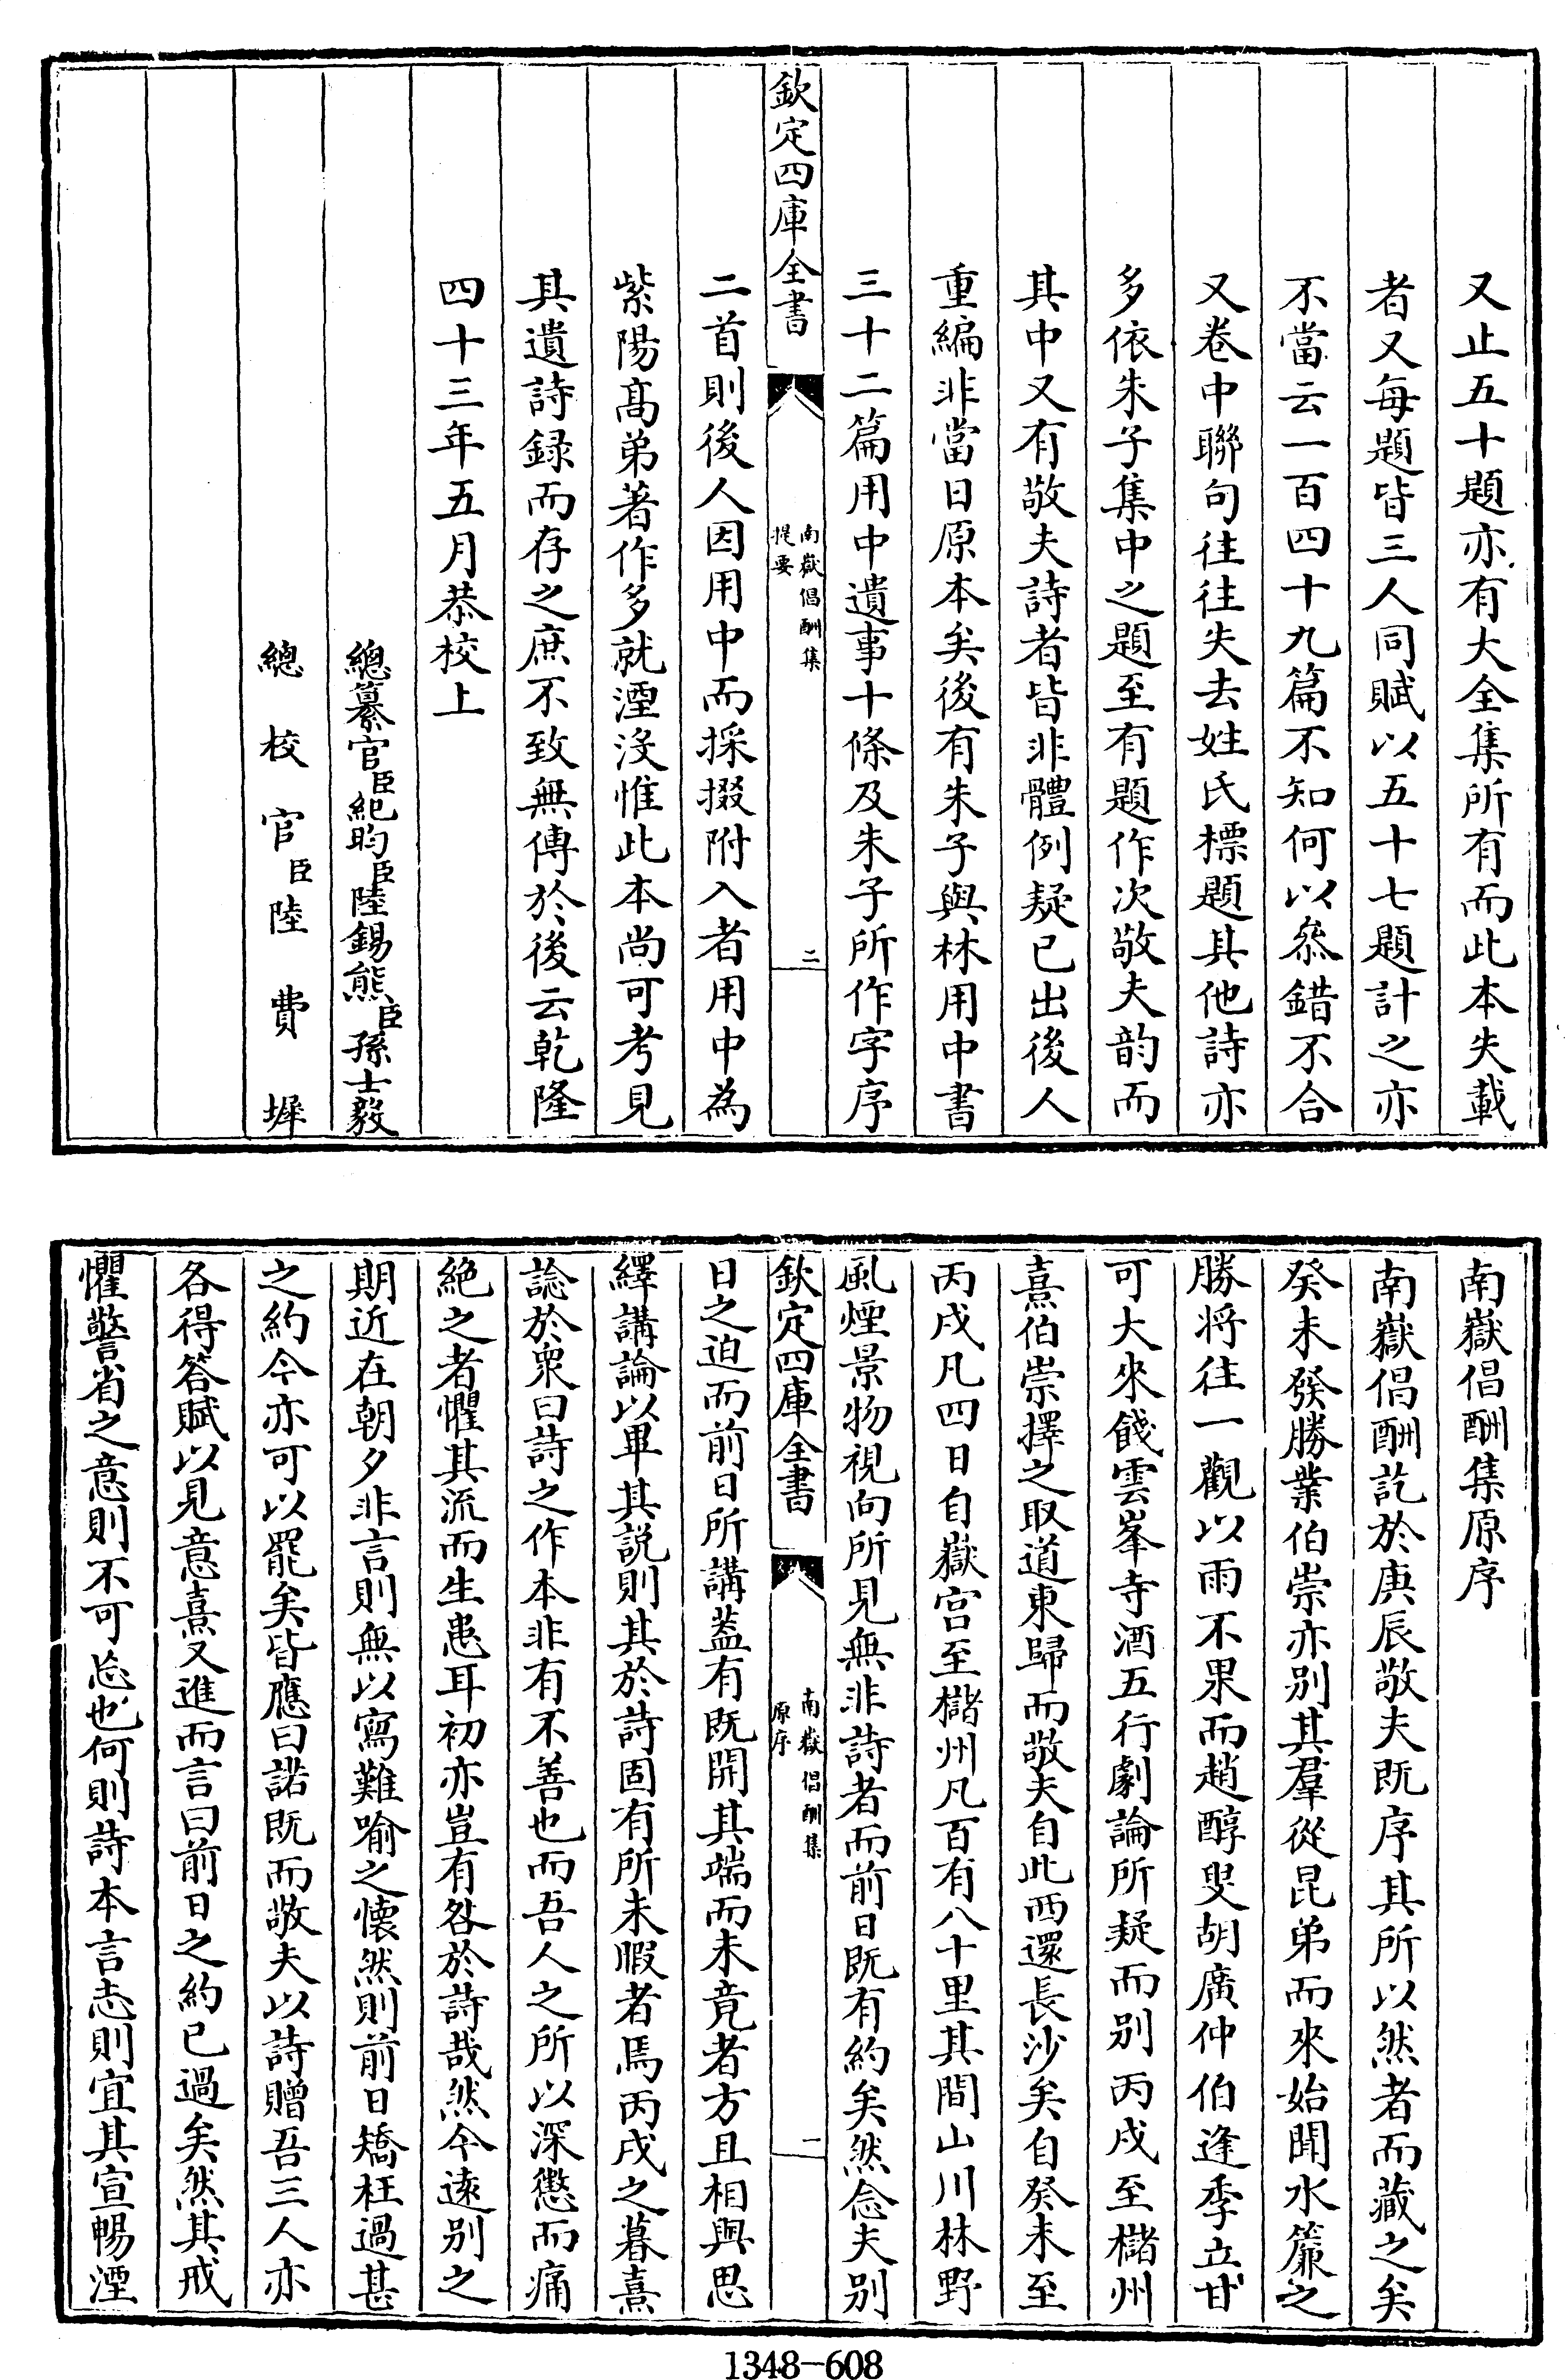 又止五十題亦有大全集所有而此本失載
者又每題皆三人同賦以五十七題計之亦
不當云一百四十九篇不知何以叅錯不合
又卷中聯句往往失去姓氏標題其他詩亦
多依朱子集中之題至有題作次敬夫韵而
其中又有敬夫詩者皆非體例疑已出後人
重編非當日原本矣後有朱子與林用中書
三十二篇用中遺事十條及朱子所作字序
欽定四庫全書
南嶽倡酬集
提要
二
二首則後人因用中而採掇附入者用中為
紫陽髙弟著作多就湮沒惟此本尚可考見
其遺詩録而存之庶不致無傳於後云乾隆
四十三年五月恭校上
總纂官臣紀昀臣陸錫熊臣孫士毅
總校官臣陸費墀
南嶽倡酬集原序
南嶽倡酬訖於庚辰敬夫既序其所以然者而藏之矣
癸未發勝業伯崇亦别其羣從昆弟而來始聞水簾之
勝将往一觀以雨不果而趙醇叟胡廣仲伯逢季立甘
可大來餞雲峯寺酒五行劇論所疑而别丙戌至櫧州
熹伯崇擇之取道東歸而敬夫自此西還長沙矣自癸未至
丙戌凡四日自嶽宫至櫧州凡百有八十里其間山川林野
風煙景物視向所見無非詩者而前日既有約矣然念夫别
欽定四庫全書
南嶽倡酬集
原序
一
日之迫而前日所講葢有既開其端而未竟者方且相與思
繹講論以畢其説則其於詩固有所未暇者焉丙戌之暮熹
諗於衆曰詩之作本非有不善也而吾人之所以深懲而痛
絶之者懼其流而生患耳初亦豈有咎於詩哉然今逺别之
期近在朝夕非言則無以寫難喻之懐然則前日矯枉過甚
之約今亦可以罷矣皆應曰諾既而敬夫以詩贈吾三人亦
各得答賦以見意熹又進而言曰前日之約已過矣然其戒
懼警省之意則不可忘也何則詩本言志則宜其宣暢湮
1348-608